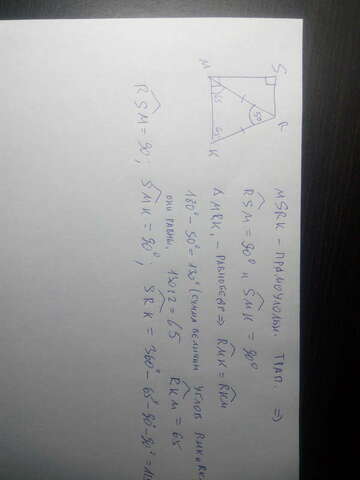 S
R
50°
M
65
65
K
MSRK - прямоугольн. трап. ⇒
RSM = 90° и SMK = 90°
Δ MRK, - равнобедр ⇒ RMK = RKM
180° - 50° = 130° (сумма величин углов RMK и RK
они равны, 130:2 = 65 RKM = 65
RSM = 90; SMK = 90°; SRK = 360° - 65° - 90° - 90° = 11